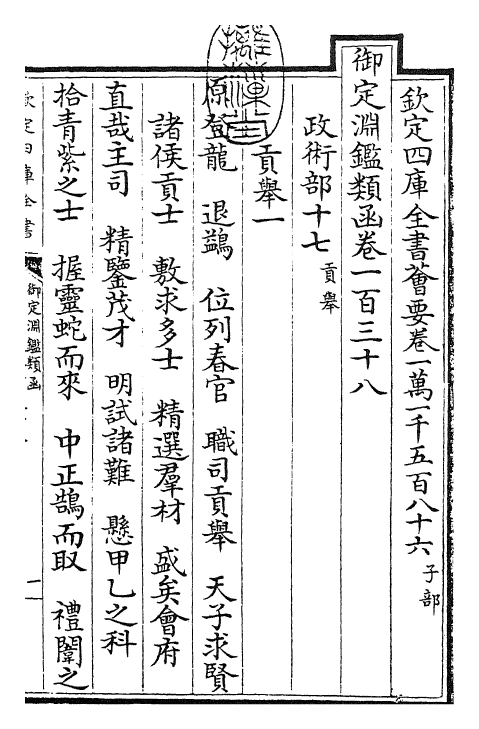 欽定四庫全書薈要卷一萬一千五百八十六 子部
御定淵鑑類函卷一百三十八
政術部十七 貢舉
貢舉一
原登龍 退鷁 位列春官 職司貢舉 天子求賢
諸侯貢士 敷求多士 精選羣材 盛矣會府
直哉主司 精鑒茂才 明試諸難 懸甲乙之科
拾青紫之士 握靈蛇而來 中正鵠而取 禮闈之
欽定四庫全書
御定淵鑑類函